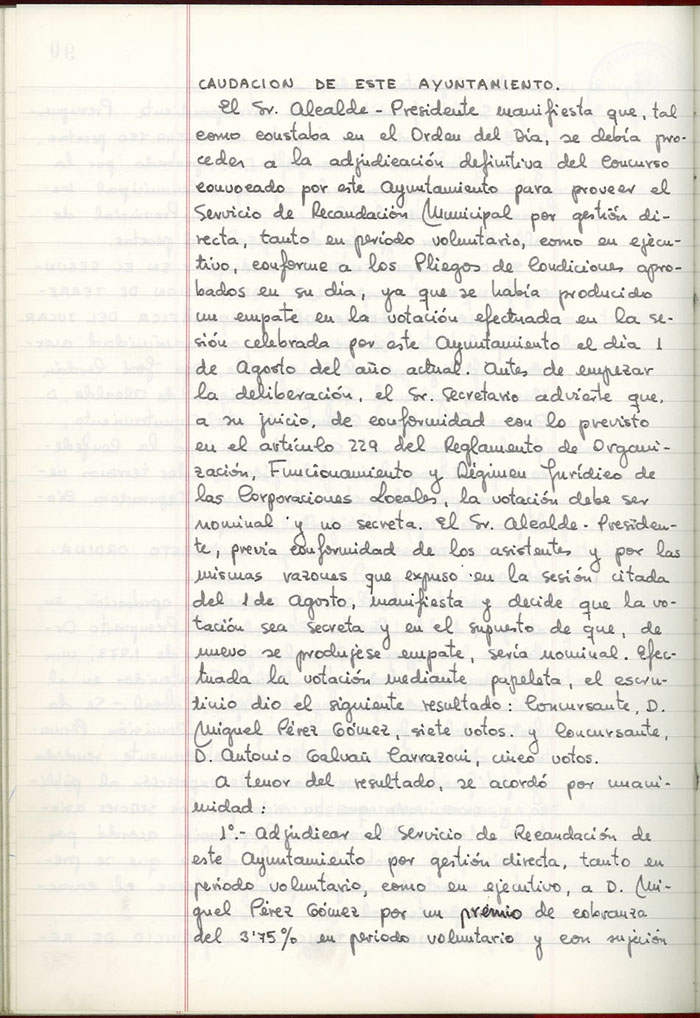 CAUDACION DE ESTE AYUNTAMIENTO.
El Sr. Alcalde-Presidente manifiesta que, tal
como constaba en el Orden del Día, se debía pro-
ceder a la adjudicación definitiva del Concurso
convocado por este Ayuntamiento para proveer el
Servicio de Recaudación Municipal por gestión di-
recta, tanto en período voluntario, como en ejecu-
tivo, conforme a los Pliegos de Condiciones apro-
bados en su día, ya que se había producido
un empate en la votación efectuada en la se-
sión celebrada por este Ayuntamiento el día 1
de Agosto del año actual. Antes de empezar
la deliberación, el Sr. Secretario advierte que,
a su juicio, de conformidad con lo previsto
en el artículo 229 del Reglamento de Organi-
zación, Funcionamiento y Régimen Jurídico de
las Corporaciones Locales, la votación debe ser
nominal y no secreta. El Sr. Alcalde-Presiden-
te, previa conformidad de los asistentes y por las
mismas razones que expuso en la sesión citada
del 1 de Agosto, manifiesta y decide que la vo-
tación sea secreta y en el supuesto de que, de
nuevo se produjese empate, sería nominal. Efec-
tuada la votación mediante papeleta, el escru-
tinio dio el siguiente resultado: Concursante, D.
Miguel Pérez Gómez, siete votos. y Concursante,
D. Antonio Galvañ Carrazoni, cinco votos.
A tenor del resultado, se acordó por unani-
midad:
1º.- Adjudicar el Servicio de Recaudación de
este Ayuntamiento por gestión directa, tanto en
período voluntario, como en ejecutivo, a D. Mi-
guel Pérez Gómez por un premio de cobranza
del 3'75% en período voluntario y con sujeción